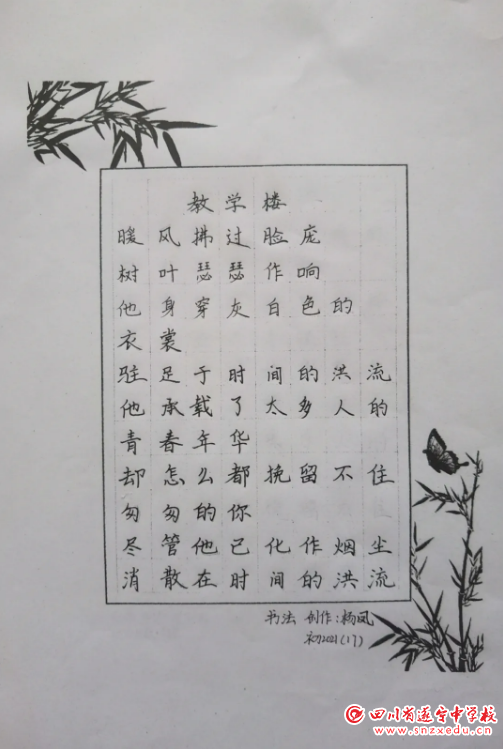 教学楼
暖风拂过脸庞
树叶瑟瑟作响
他身穿灰白色的
衣裳
驻足于时间的洪流
他承载了太多人的
青春年华
却怎么都挽留不住
匆匆的你
尽管他已化作烟尘
消散在时间的洪流
书法 创作:杨凤
初2021(17)
四川省遂宁中学校
www.snzxedu.cn